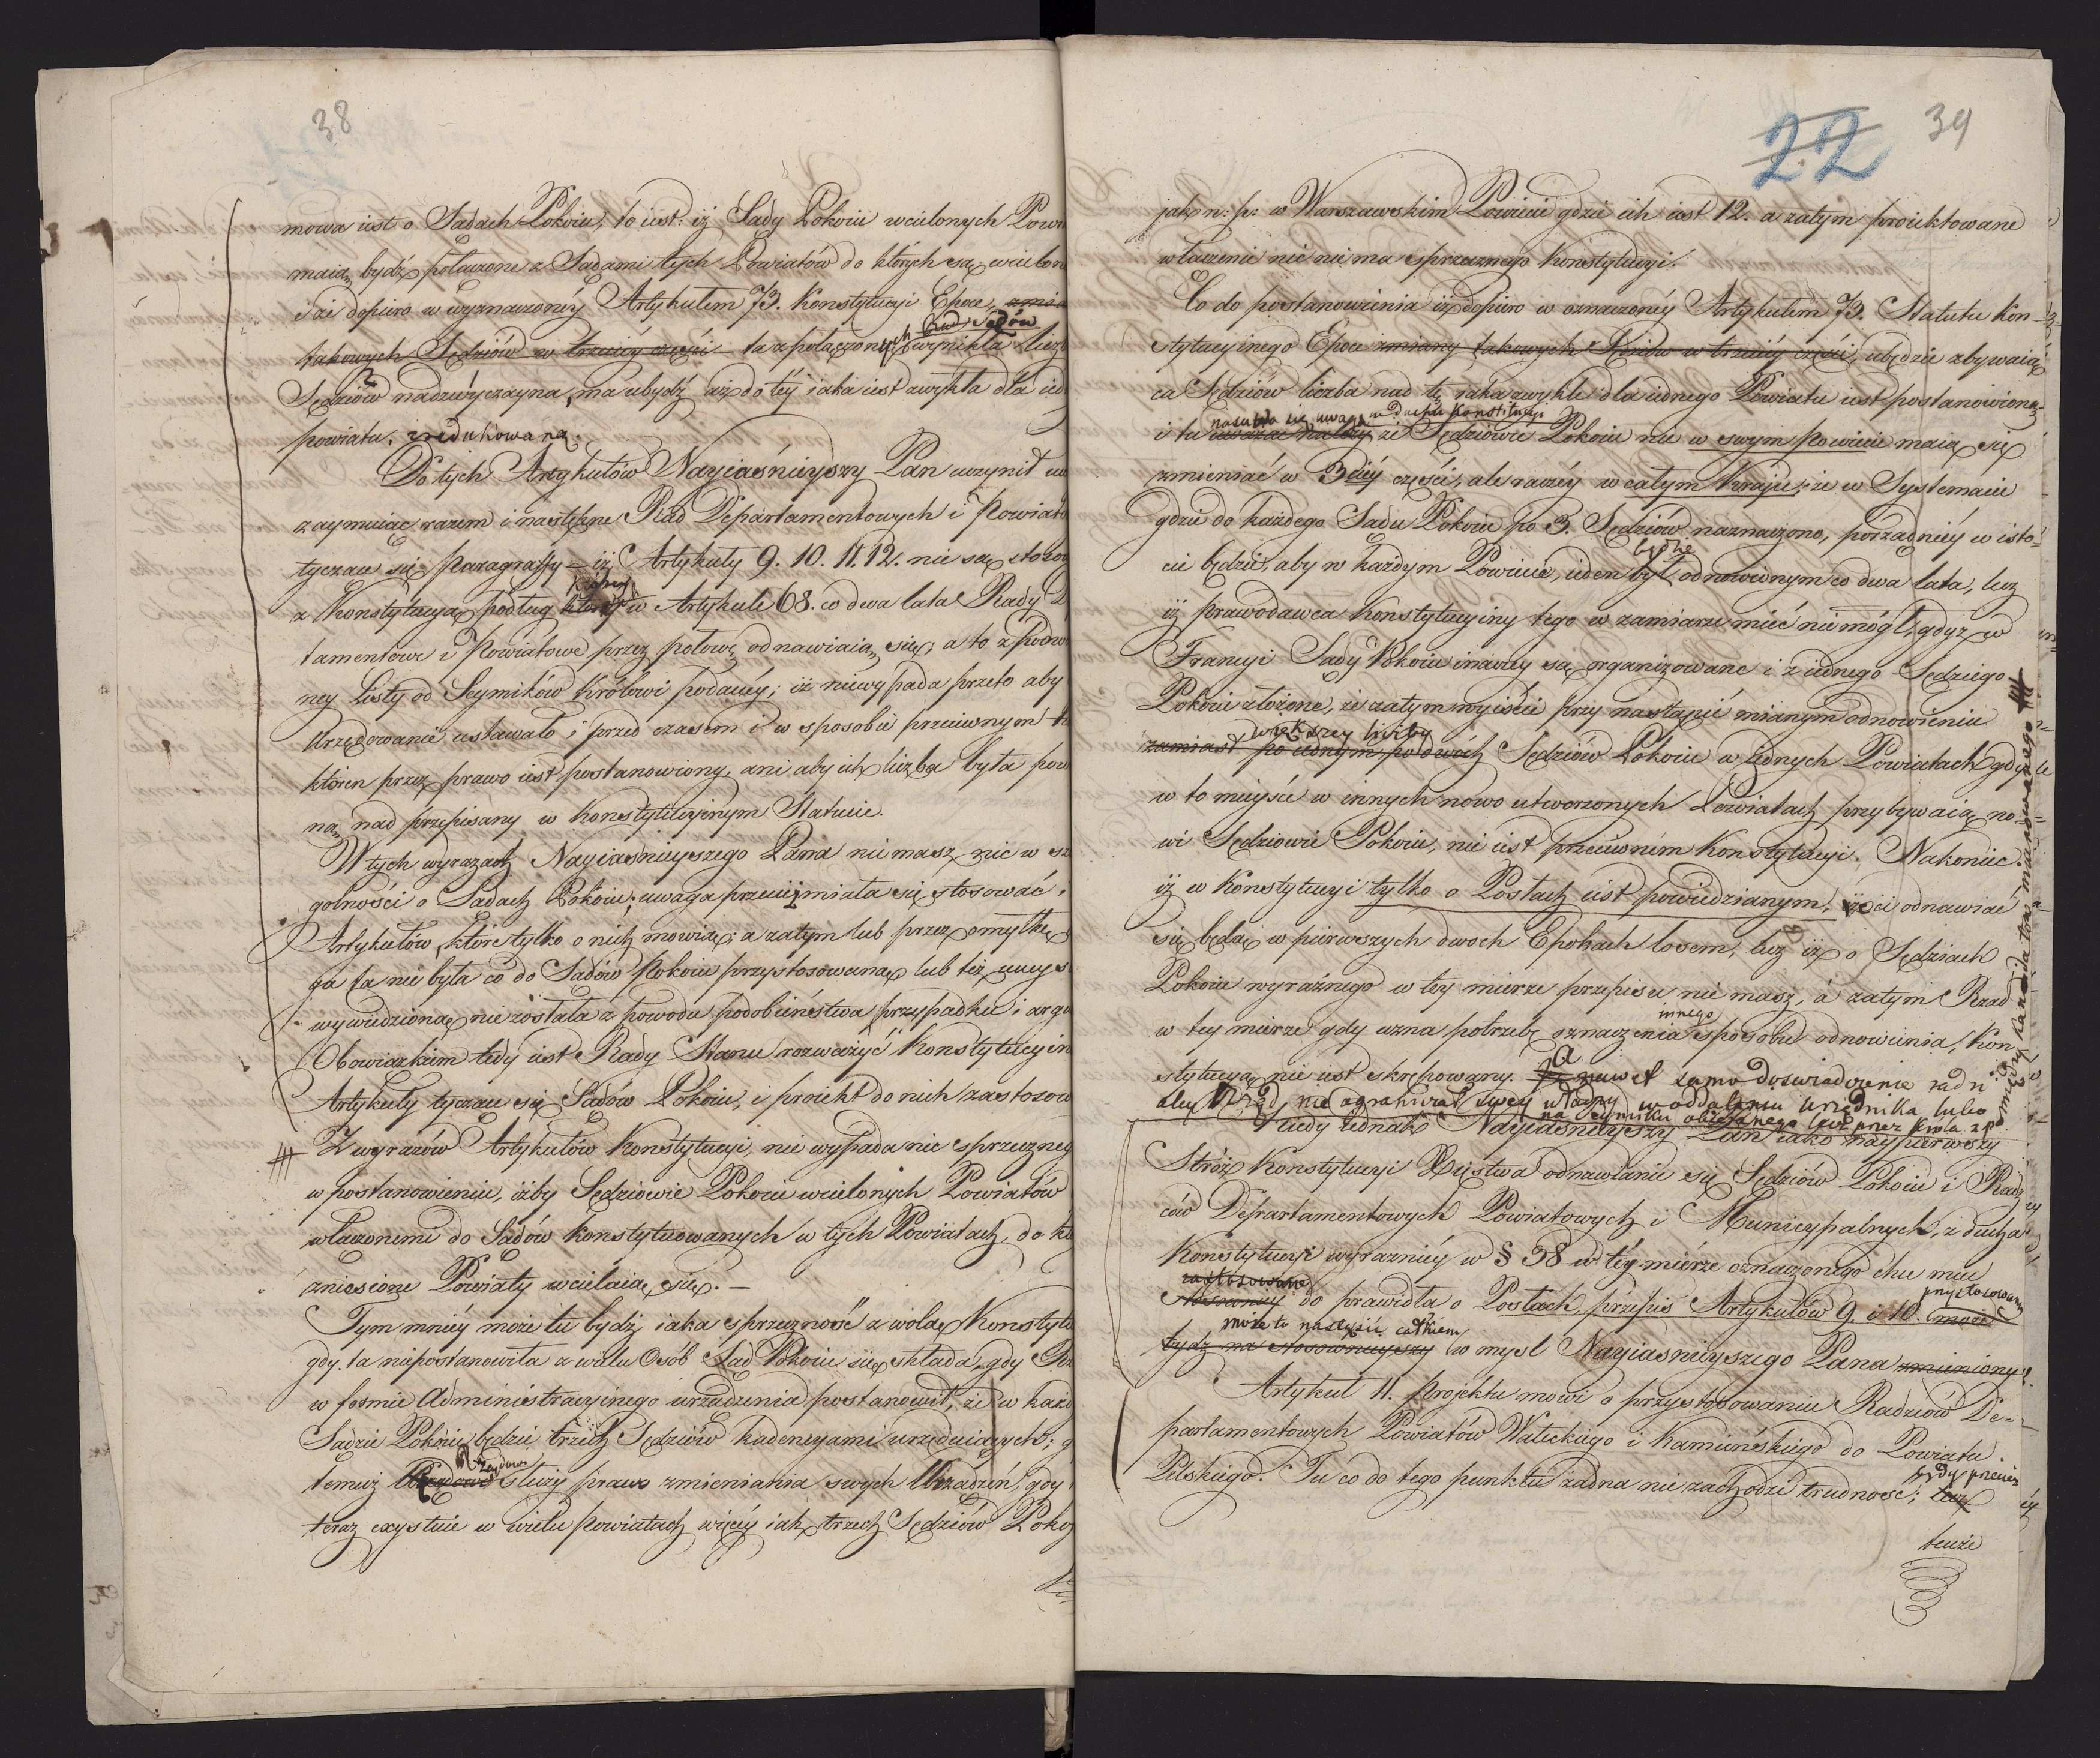 38
mowa iest o Sądach Pokoiu, to iest: iż Sądy Pokoiu wcielonych Pow
maią bydź połączone z Sądami tych Powiatów do których są wcielon
i że dopiero w wyznaczonéy Artykułem 73. Konstytucyi Epoce,
takowych Sędziów w trzeciéy części ta z połączonych Sądów wynikła licz
Sędziów nadzwyczayna, ma ubydź aż do téy iaka iest zwykła dla ied
powiatu, zredukowaną.
Do tych Artykułów Nayiaśnieyszy Pan uczynił uw
zaymuiąc razem i następne Rad Departamentowych i Powiato
tyczące się Paragrafy – iż Artykuły 9. 10. 11. 12. nie są stosow
z Konstytucyą podług którey w Artykule 68. co dwa lata Rady D
tamentowe i Powiatowe przez połowę odnawiaią się; a to z podwo
ney Listy od Seymików Królowi podanéy; iż niewypada przeto aby
Urzędowanie ustawało i przed czasem i w sposobie przeciwnym
któren przez prawo iest postanowiony, ani aby ich liczba była pow
ną nad przepisany w Konstytucyinym Statucie.
W tych wyrazach Nayiaśnieyszego Pana nie masz nic w sz
golności o Sądach Pokoiu; uwaga przecież miała się stosować
Artykułów, które tylko o nich mowią; a zatym lub przez omyłkę
ga ta nie była co do Sądów Pokoiu przystosowaną lub też
wywiedzioną nie została z powodu podobieństwa przypadku i argu
Obowiązkiem tedy iest Rady Stanu rozważyć Konstytucyin
Artykuły tyczące się Sądów Pokoiu, i proiekt do nich zastosow
Z wyrazów Artykułów Konstytucyi, nie wypada nic sprzeczneg
w postanowieniu, iżby Sędziowie Pokoiu wcielonych Powiatów
włączonemi do Sądów konstytuowanych w tych Powiatach, do kt
zniesione Powiaty wcielaią się. –
Tym mniéy może tu bydź iaka sprzeczność z wolą Konstytu
gdy ta niepostanowiła z wielu Osób Sąd Pokoiu się składa, gdy Rz
w formie Administracyinego urządzenia postanowił, że w każd
Sądzie Pokoiu będzie trzech Sędziów kadencyami urzęduiących; g
temuż Rządowi służy prawo zmieniania swych Urządzeń, gdy
teraz exystuie w wielu Powiatach więcéy iak trzech Sędziów Poko
22 39
jak n: p: w Warszawskim Powiecie gdzie ich iest 12. a zatym proiektowane
włączenie nic nie ma sprzecznego Konstytucyi.
Co do postanowienia iż dopiero w oznaczonéy Artykułem 73. Statutu Kon-
stytucyinego Epoce zmiany takowych Sędziów w trzeciéy części, ubędzie zbywaią
ca Sędziów liczba nad tę iaka zwykle dla iednego Powiatu iest postanowioną
nasuwa się uwaga z ducha Konstitucyi
i tu uważać należy że Sędziowie Pokoiu nie w swym powiecie maią się
zmieniać w 3ciéy części, ale raczéy w całym Kraju, że w Systemacie
gdzie do każdego Sądu Pokoiu po 3. Sędziów naznaczono, porządniéy w isto-
będzie
cie będzie, aby w każdym Powiecie, ieden był odnowionym co dwa lata, lecz
iż prawodawca Konstytucyiny tego w zamiarze mieć nie mógł, gdyż w
Francyi Sądy Pokoiu inaczey są organizowane i z iednego Sędziego
Pokoiu złożone, że zatym wyiście przy nastąpić mianym odnowieniu
większey liczby
zamiast po iednym po dwóch Sędziów Pokoiu w iednych Powiatach gdy
w to mieysce w innych nowo utworzonych Powiatach przybywaią no-
wi Sędziowie Pokoiu, nie iest przeciwném Konstytucyi. Nakoniec
iż w Konstytucyi tylko o Posłach iest powiedzianym, iż ci odnawiać
się będą w pierwszych dwoch Epokach losem, lecz iż o Sędziach
Pokoiu wyraźnego w tey mierze przepisu nie masz, a zatym Rząd
innego
w tey mierze gdy uzna potrzebę oznaczenia sposobu odnowienia, Kon
stytucyą nie iest skrępowany. a nawet samo doswiadczenie radzi
aby Rząd nie ograniczał swey władzy w oddaleniu Urzędnika lubo
na Seymiku obieranego lecz przez Krola z po
między kandydatow mianowanego
tedy iednak Nayiasnieyszy Pan iako naypierwszy
Stróż Konstytucyi Xięstwa odnawianie się Sędziów Pokoiu i Radz
ców Departamentowych Powiatowych i Municypalnych, z ducha
Konstytucyi wyraźniéy w § 58 w téy mierze oznaczonego chce miec
zastosowane
stosowniéy do prawidła o Posłach, przepis Artykułów 9. i 10. może
przystosowany
może to nastąpić całkiem
bydź na stosownieyszy w mysl Nayiasnieyszego Pana zmieniony.
Artykuł 11. Projektu mowi o przystosowaniu Radzców De-
partamentowych Powiatów Wałeckiego i Kamieńskiego do Powiatu
Pilskiego. Tu co do tego punktu żadna nie zachodzi trudność; lecz
gdy przecież
tenże